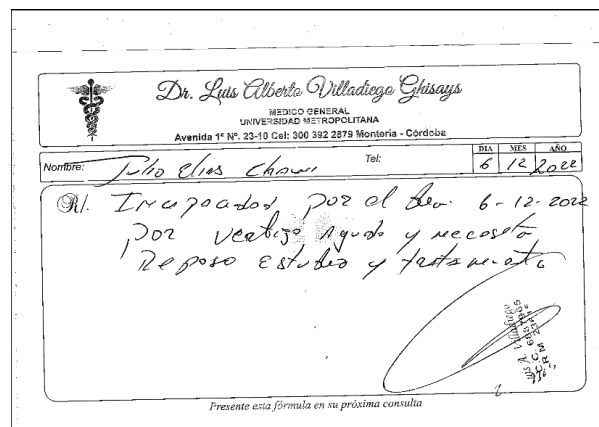 Dr. Luis Alberto Villadiego Ghisays
MEDICO GENERAL
UNIVERSIDAD METROPOLITANA
Avenida 1ª Nº. 23-10 Cel: 300 392 2879 Montería - Córdoba
Nombre: Julio Elias Tel:
DIA MES AÑO
6 12 2022
R/. Incapacidad por el dia 6-12-2022
por vertigo Agudo y necesita
Reposo Estudio y tratamiento
Presente esta fórmula en su próxima consulta